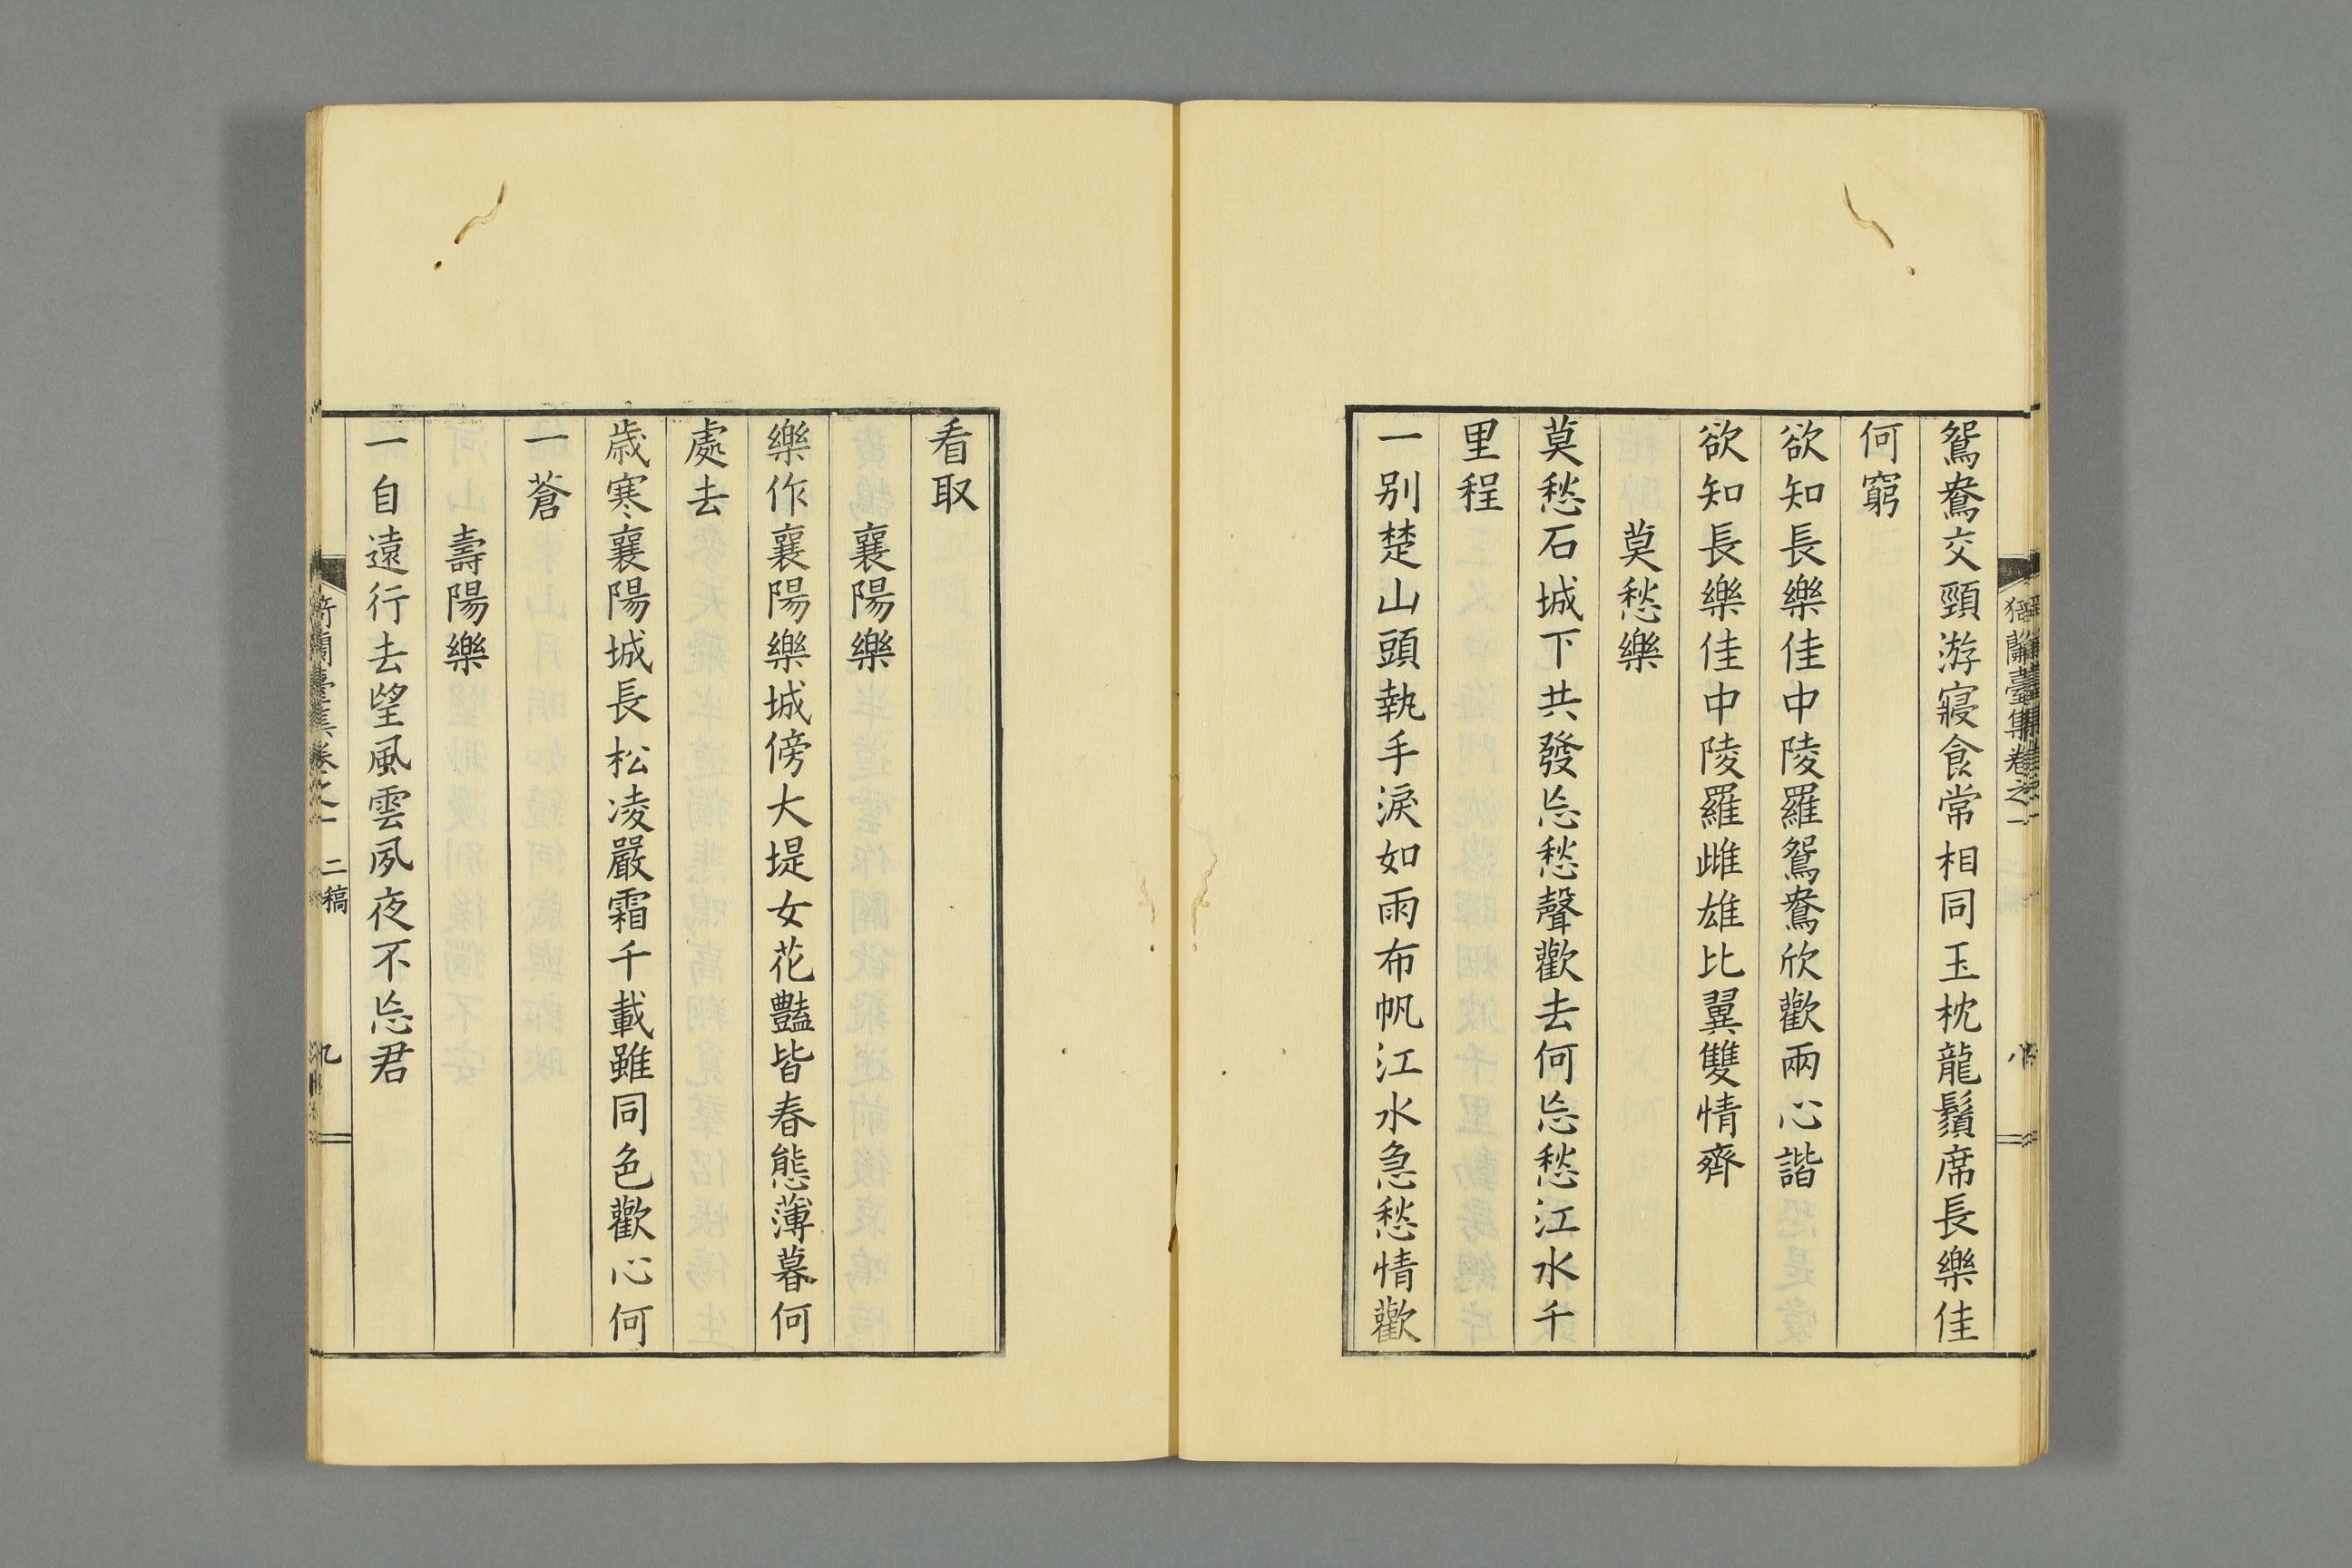 鴛鴦交頸游寢食常相同玉枕龍鬚席長樂佳
何窮
欲知長樂佳中陵羅鴛鴦欣歡兩心諧
欲知長樂佳中陵羅雎雄比翼雙情齊
莫愁樂
莫愁石城下共發忘愁聲歡去何忘愁江水千
里程
一別楚山頭執手淚如雨布帆江水急愁情歡
看取
襄陽樂
樂作襄陽樂城傍大堤女花豔皆春態薄暮何
處去
歳寒襄陽城長松凌嚴霜千載雖同色歡心何
一蒼
壽陽樂
一自遠行去望風雲夙夜不忘君
蘭臺集卷之一
二稿
九